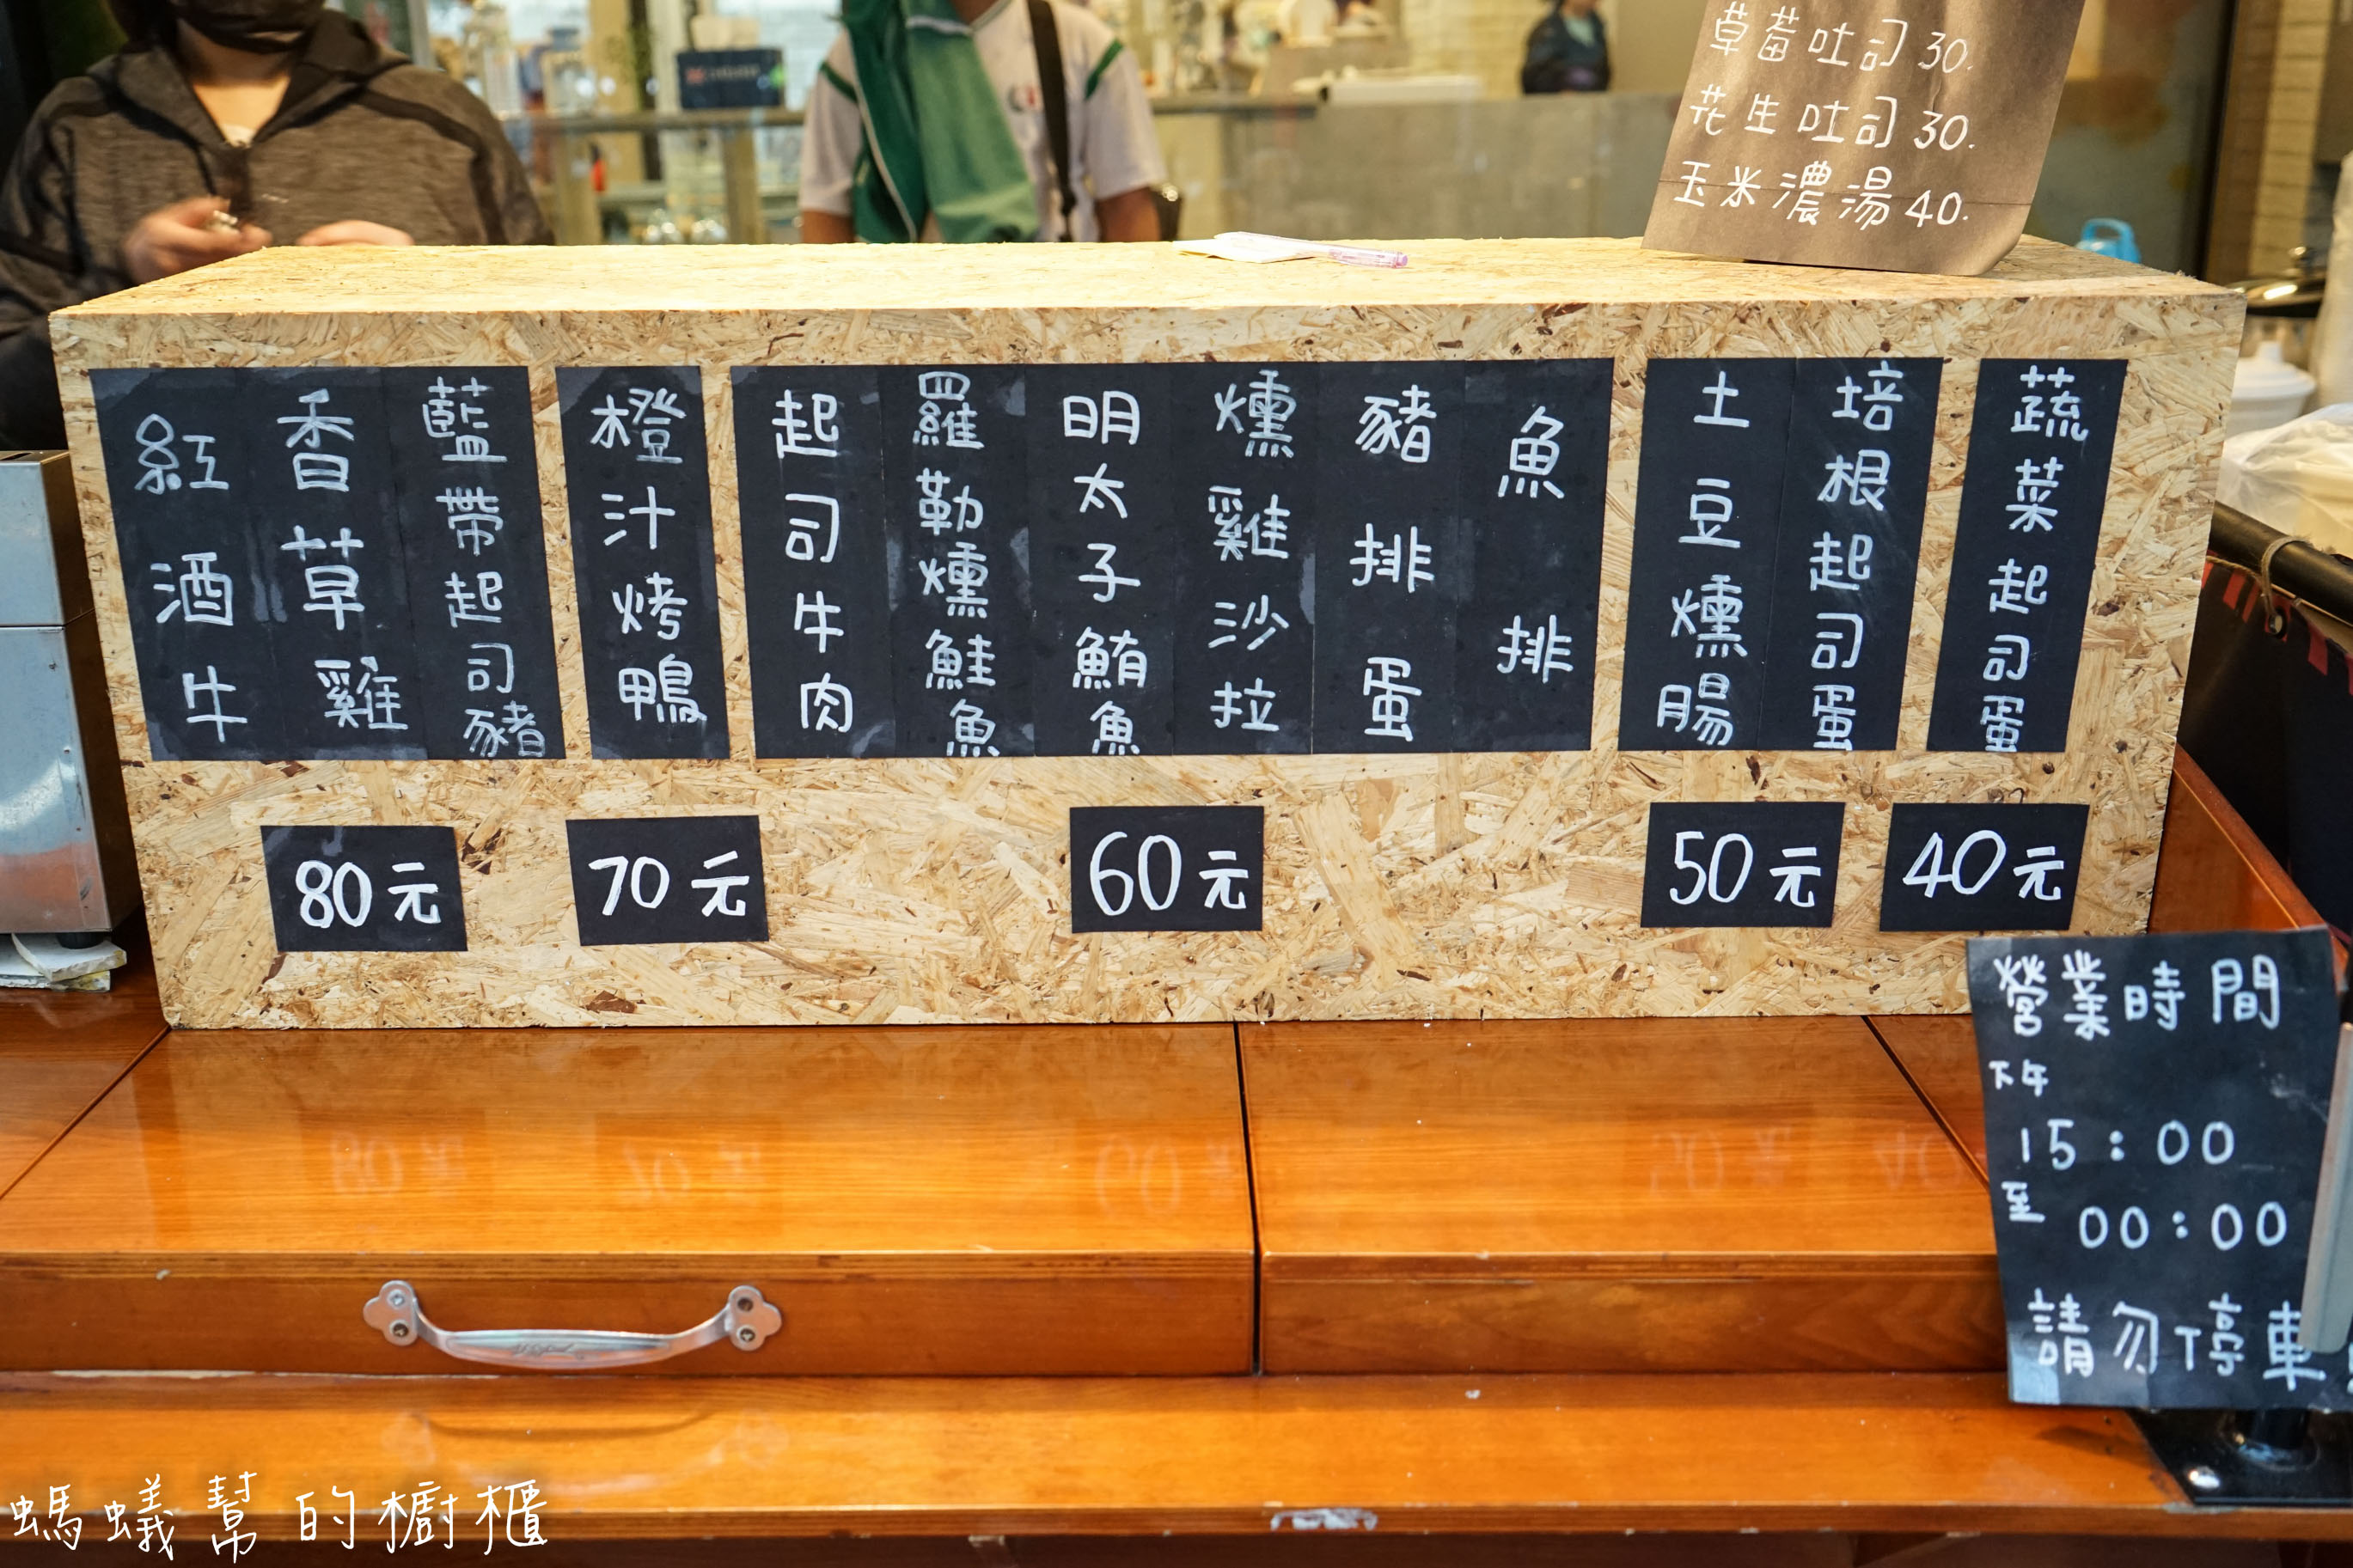 草莓吐司30.
花生吐司30.
玉米濃湯40.
紅酒牛
香草雞
藍帶起司豬
橙汁烤鴨
起司牛肉
羅勒燻鮭魚
明太子鮪魚
燻雞沙拉
豬排蛋
魚排
土豆燻腸
培根起司蛋
蔬菜起司蛋
80元
70元
60元
50元
40元
營業時間
下午
15:00
至
00:00
請勿停車
螞蟻幫的櫥櫃